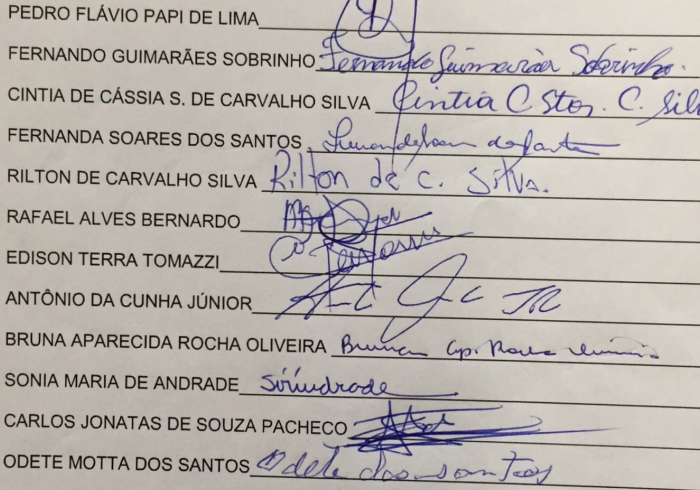 PEDRO FLÁVIO PAPI DE LIMA
FERNANDO GUIMARÃES SOBRINHO Fernando Guimarães Sobrinho.
CINTIA DE CÁSSIA S. DE CARVALHO SILVA Cintia C. Stos. C. Sil
FERNANDA SOARES DOS SANTOS
RILTON DE CARVALHO SILVA Rilton de C. Silva.
RAFAEL ALVES BERNARDO
EDISON TERRA TOMAZZI
ANTÔNIO DA CUNHA JÚNIOR
BRUNA APARECIDA ROCHA OLIVEIRA Bruna Ap. Rocha
SONIA MARIA DE ANDRADE
CARLOS JONATAS DE SOUZA PACHECO
ODETE MOTTA DOS SANTOS Odete dos santos